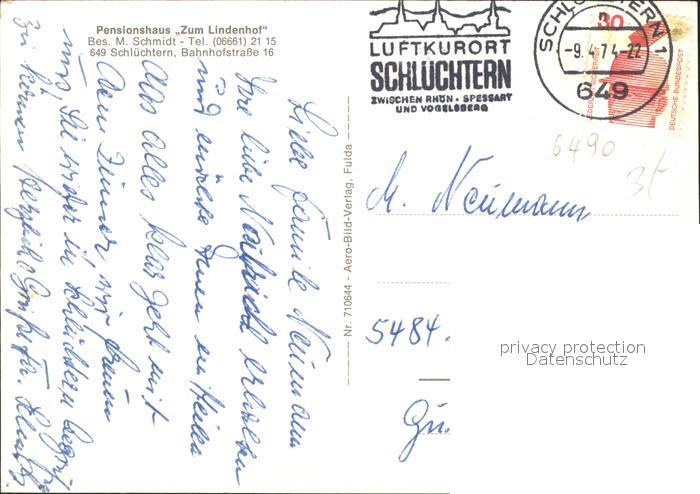 Pensionshaus „Zum Lindenhof"
Bes. M. Schmidt - Tel. (06661) 21 15
649 Schlüchtern, Bahnhofstraße 16
LUFTKURORT
SCHLÜCHTERN
ZWISCHEN RHÖN · SPESSART
UND VOGELSBERG
SCHLÜCHTERN 1
-9.4.74-22
649
30
DEUTSCHE BUNDESPOST
6490
Liebe Familie Neumann
Ihre liebe Nachricht erhalten
und möchte Ihnen mitteilen
das alles klar geht mit
dem Zimmer wir freuen
uns Sie wieder in Schlüchtern
zu können Herzliche Grüße
Nr. 710644 - Aero-Bild-Verlag, Fulda
M. Neumann
5484.
privacy protection
Datenschutz